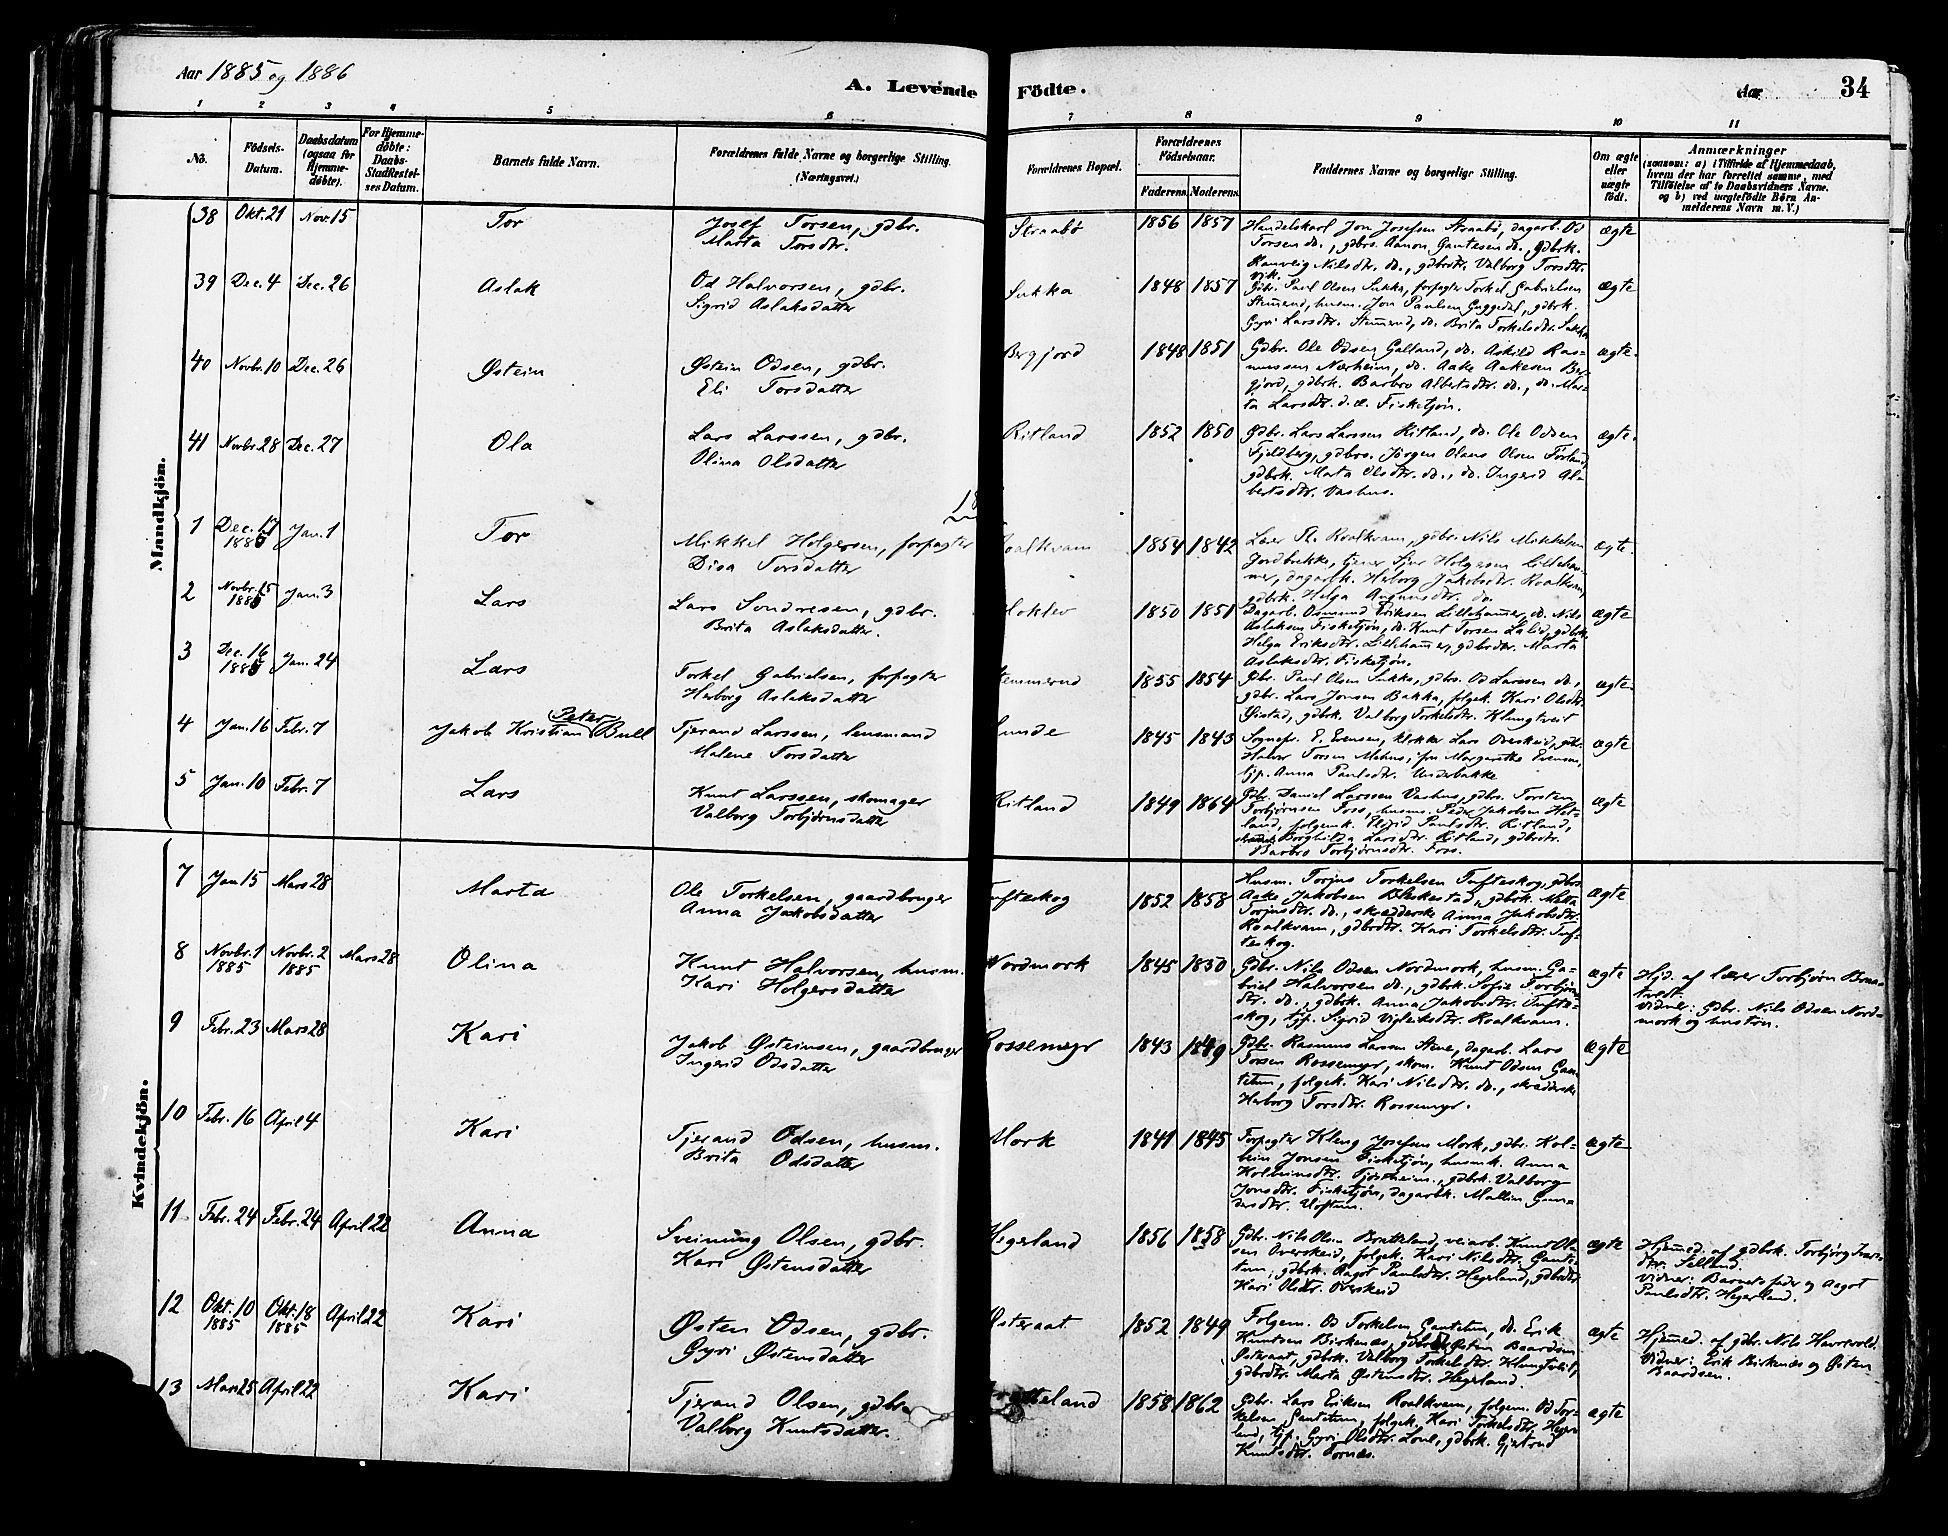 Aar 1885 og 1886
A. Levende Födte.
Aar
34
1 2 3 4 5 6 7 8 9 10 11
No.
Födsels-Datum.
Daabsdatum (ogsaa for Hjemmedöbte).
For Hjemmedöbte: Daabs-Stadfæstelses Datum.
Barnets fulde Navn.
Forældrenes fulde Navne og borgerlige Stilling. (Næringsvei.)
Forældrenes Bopæl.
Forældrenes Födselsaar.
Faderens. Moderens.
Faddernes Navne og borgerlige Stilling.
Om ægte eller uægte födt.
Anmærkninger
(saasom: a) i Tilfælde af Hjemmedaab,
hvem der har forrettet samme, med
Tilföielse af to Daabsvidners Navne,
og b) ved uægtefödte Börn Anmelderens Navn m. V.)
Mandkjön.
38 Okt. 21 Nov. 15 Tor
Josef Torsen, gdbr.
Marta Torsdtr.
Straabö 1856 1857
Handelskarl Jon Josefsen Straabö, dagarb. Od
Torsen do., gdbrs. Aamon Gautesen do., gdbrk.
Ranveig Nilsdtr. do., gdbrdtr. Valborg Torsdtr.
vik.
ægte
39 Dec. 4 Dec. 26 Aslak
Od Halvorsen, gdbr.
Sigrid Aslaksdatter
Sukka 1848 1857
Gdbr. Paul Olsen Sukka, forpagter Torkel Gabrielsen
Stemmerud, husm. Jon Paulsen Guggedal, gdbrk.
Gyri Larsdtr. Stemmerud, do. Brita Torkelsdtr. Sukka
ægte
40 Novbr. 10 Dec. 26 Østein
Østein Odsen, gdbr.
Eli Torsdatter
Bergjord 1848 1851
Gdbr. Ole Odsen Galland, do. Askild Ras-
mussen Nærheim, do. Aake Aakesen Ber-
gjord, gdbrk. Barbro Albertsdtr. do., do. Mar-
ta Larsdtr. d. æ. Fisketjøn.
ægte.
41 Novbr. 28 Dec. 27 Ola
Lars Larssen, gdbr.
Olina Olsdatter
Ritland 1852 1850
Gdbr. Lars Larssen Ritland, do. Ole Odsen
Fjeldberg, gdbrs. Jörgen Olaus Olsen Förland,
gdbrk. Marta Olsdtr. do., do. Ingerid Al-
bertsdtr. Vashus.
ægte.
1 Dec. 17 1885 Jan. 1 Tor
Mikkel Holgersen, forpagter
Disa Torsdatter
Roalkvam 1854 1842
Lærer Tl. Roalkvam, gdbr. Nils Mikkelsen
Jordbrække, tjener Sjur Holgersen Lilleham-
mer, dagarbk. Herborg Jakobsdtr. Roalkvam,
gdbrk. Helga Aamundsdtr. do.
ægte.
2 Novbr. 15 1885 Jan. 3 Lars
Lars Sondresen, gdbr.
Brita Aslaksdatter.
1850 1851
Dagarb. Osmund Eriksen Lillehammer, do. Nils
Aslaksen Fisketjön, do. Knut Torsen Lalid, gdbrk.
Helga Eriksdtr. Lillehammer, gdbrdtr. Marta
Aslaksdtr. Fisketjön.
ægte
3 Dec. 16 1885 Jan. 24 Lars
Torkel Gabrielsen, forpagter
Herborg Aslaksdatter
Stemmerud 1855 1854
Gdbr. Paul Olsen Sukka, gdbrs. Od Larssen do.,
gdbr. Lars Jonsen Bakka, folgek. Kari Olsdtr.
Øistad, gdbrk. Valborg Torkelsdtr. Klungtveit
ægte.
4 Jan. 16 Febr. 7 Jakob Kristian Peter Bull
Tjerand Larssen, lensmand
Malene Torsdatter
Sunde 1845 1843
Sognepr. E. Evensen, klokker Lars Overskeid, gdbr.
Halvor Torsen Mehus, fru Margarethe Evensen,
tjp. Anna Paulsdtr. Undebakke
ægte
5 Jan. 10 Febr. 7 Lars
Knut Larssen, skomager
Valborg Torbjörnsdatter
Ritland 1849 1864
Gdbr. Daniel Larssen Vashus, gdbrs. Torsten
Torbjörnsen Foss, husm. Peder Jakobsen Het-
land, folgemk. Eldrid Paulsdtr. Ritland,
Borghilda Larsdtr. Ritland, gdbrdtr.
Barbro Torbjörnsdtr. Foss.
ægte
Kvindekjön.
7 Jan 15 Mars 28 Marta
Ole Torkelsen, gaardbruger
Anna Jakobsdatter
Tufteskog 1852 1858
Husm. Torjus Torkelsen Tufteskog, gdbrs.
Aake Jakobsen Bleskestad, gdbrk. Malla
Torjusdtr. do., skrædderske Anna Jakobsdtr.
Roalkvam, gdbrdtr. Kari Torkelsdtr. Tuf-
teskog.
ægte
8 Novbr. 1 1885 Novbr. 2 1885 Mars 28 Olina
Knut Halvorsen, husm.
Kari Holgersdatter
Nordmork 1845 1850
Gdbr. Nils Odsen Nordmork, husm. Ga-
briel Halvorsen do., gdbrk. Sofie Torbjörns-
dtr. do., gdbrk. Anna Jakobsdtr. Tufte-
skog, tjp. Sigrid Vigleiksdtr. Roalkvam.
ægte
Hjd. af lærer Torbjørn Braa-
tvedt.
vidner: Gdbr. Nils Odsen Nord-
mork og hustru.
9 Febr. 23 Mars 28 Kari
Jakob Østeinsen, gaardbruger
Ingerid Odsdatter
Rossemyr 1843 1849
Gdbr. Rasmus Larsen Stene, dagarb. Lars
Torsen Rossemyr, skom. Knut Odsen Gau-
tetun, folgek. Kari Nilsdtr. do., skrædderske
Herborg Torsdtr. Rossemyr.
ægte
10 Febr. 16 April 4 Kari
Tjerand Odsen, husm.
Brita Odsdatter
Mork 1841 1845
Forpagter Kleng Josefsen Mork, gdbr. Kol-
bein Jonsen Fisketjön, husmk. Anna
Kolbeinsdtr. Tjostheim, gdbrk. Valborg
Jonsdtr. Fisketjön, dagarbk. Mallin Gun-
dersdtr. Hoftun.
ægte
11 Febr. 24 Febr. 24 April 22 Anna
Sveinung Olsen, gdbr.
Kari Østensdatter
Hegerland 1856 1858
Gdbr. Nils Olsen Bratteland, veiarb. Knut Ol-
sen Overskeid, folgek. Kari Nilsdtr. Gaute-
tun, gdbrk. Aagot Paulsdtr. Hegerland, gdbrdtr.
Kari Olsdtr. Overskeid
ægte
Hjemmed. af gdbrk. Torbjørg Ivars-
dtr. Selland.
vidner: Barnets fader og Aagot
Paulsdtr. Hegerland.
12 Okt. 10 1885 Okt. 18 1885 April 22 Kari
Østen Odsen, gdbr.
Gyri Østensdatter
Østeraat 1852 1849
Folgem. Od Torkelsen Gautetun, do. Erik
Knutsen Birkenæs, gdbrs. Østen Baardsen
Østeraat, gdbrk. Valborg Torkelsdtr. Klungtveit,
gdbrdtr. Marta Østensdtr. Hegerland.
ægte
Hjemmed. af gdbr. Nils Havrevold.
vidner: Erik Birkenæs og Østen
Baardsen.
13 Mars 25 April 22 Kari
Tjerand Olsen, gdbr.
Valborg Knutsdatter.
Bratteland 1858 1862
Gdbr. Lars Eriksen Roalkvam, folgem. Od Tor-
kelsen Gautetun, folgek. Kari Torkelsdtr. Heger-
land, tjp. Gyri Olsdtr. Lone, gdbrk. Gjertrud
Knutsdtr. Tornes.
ægte